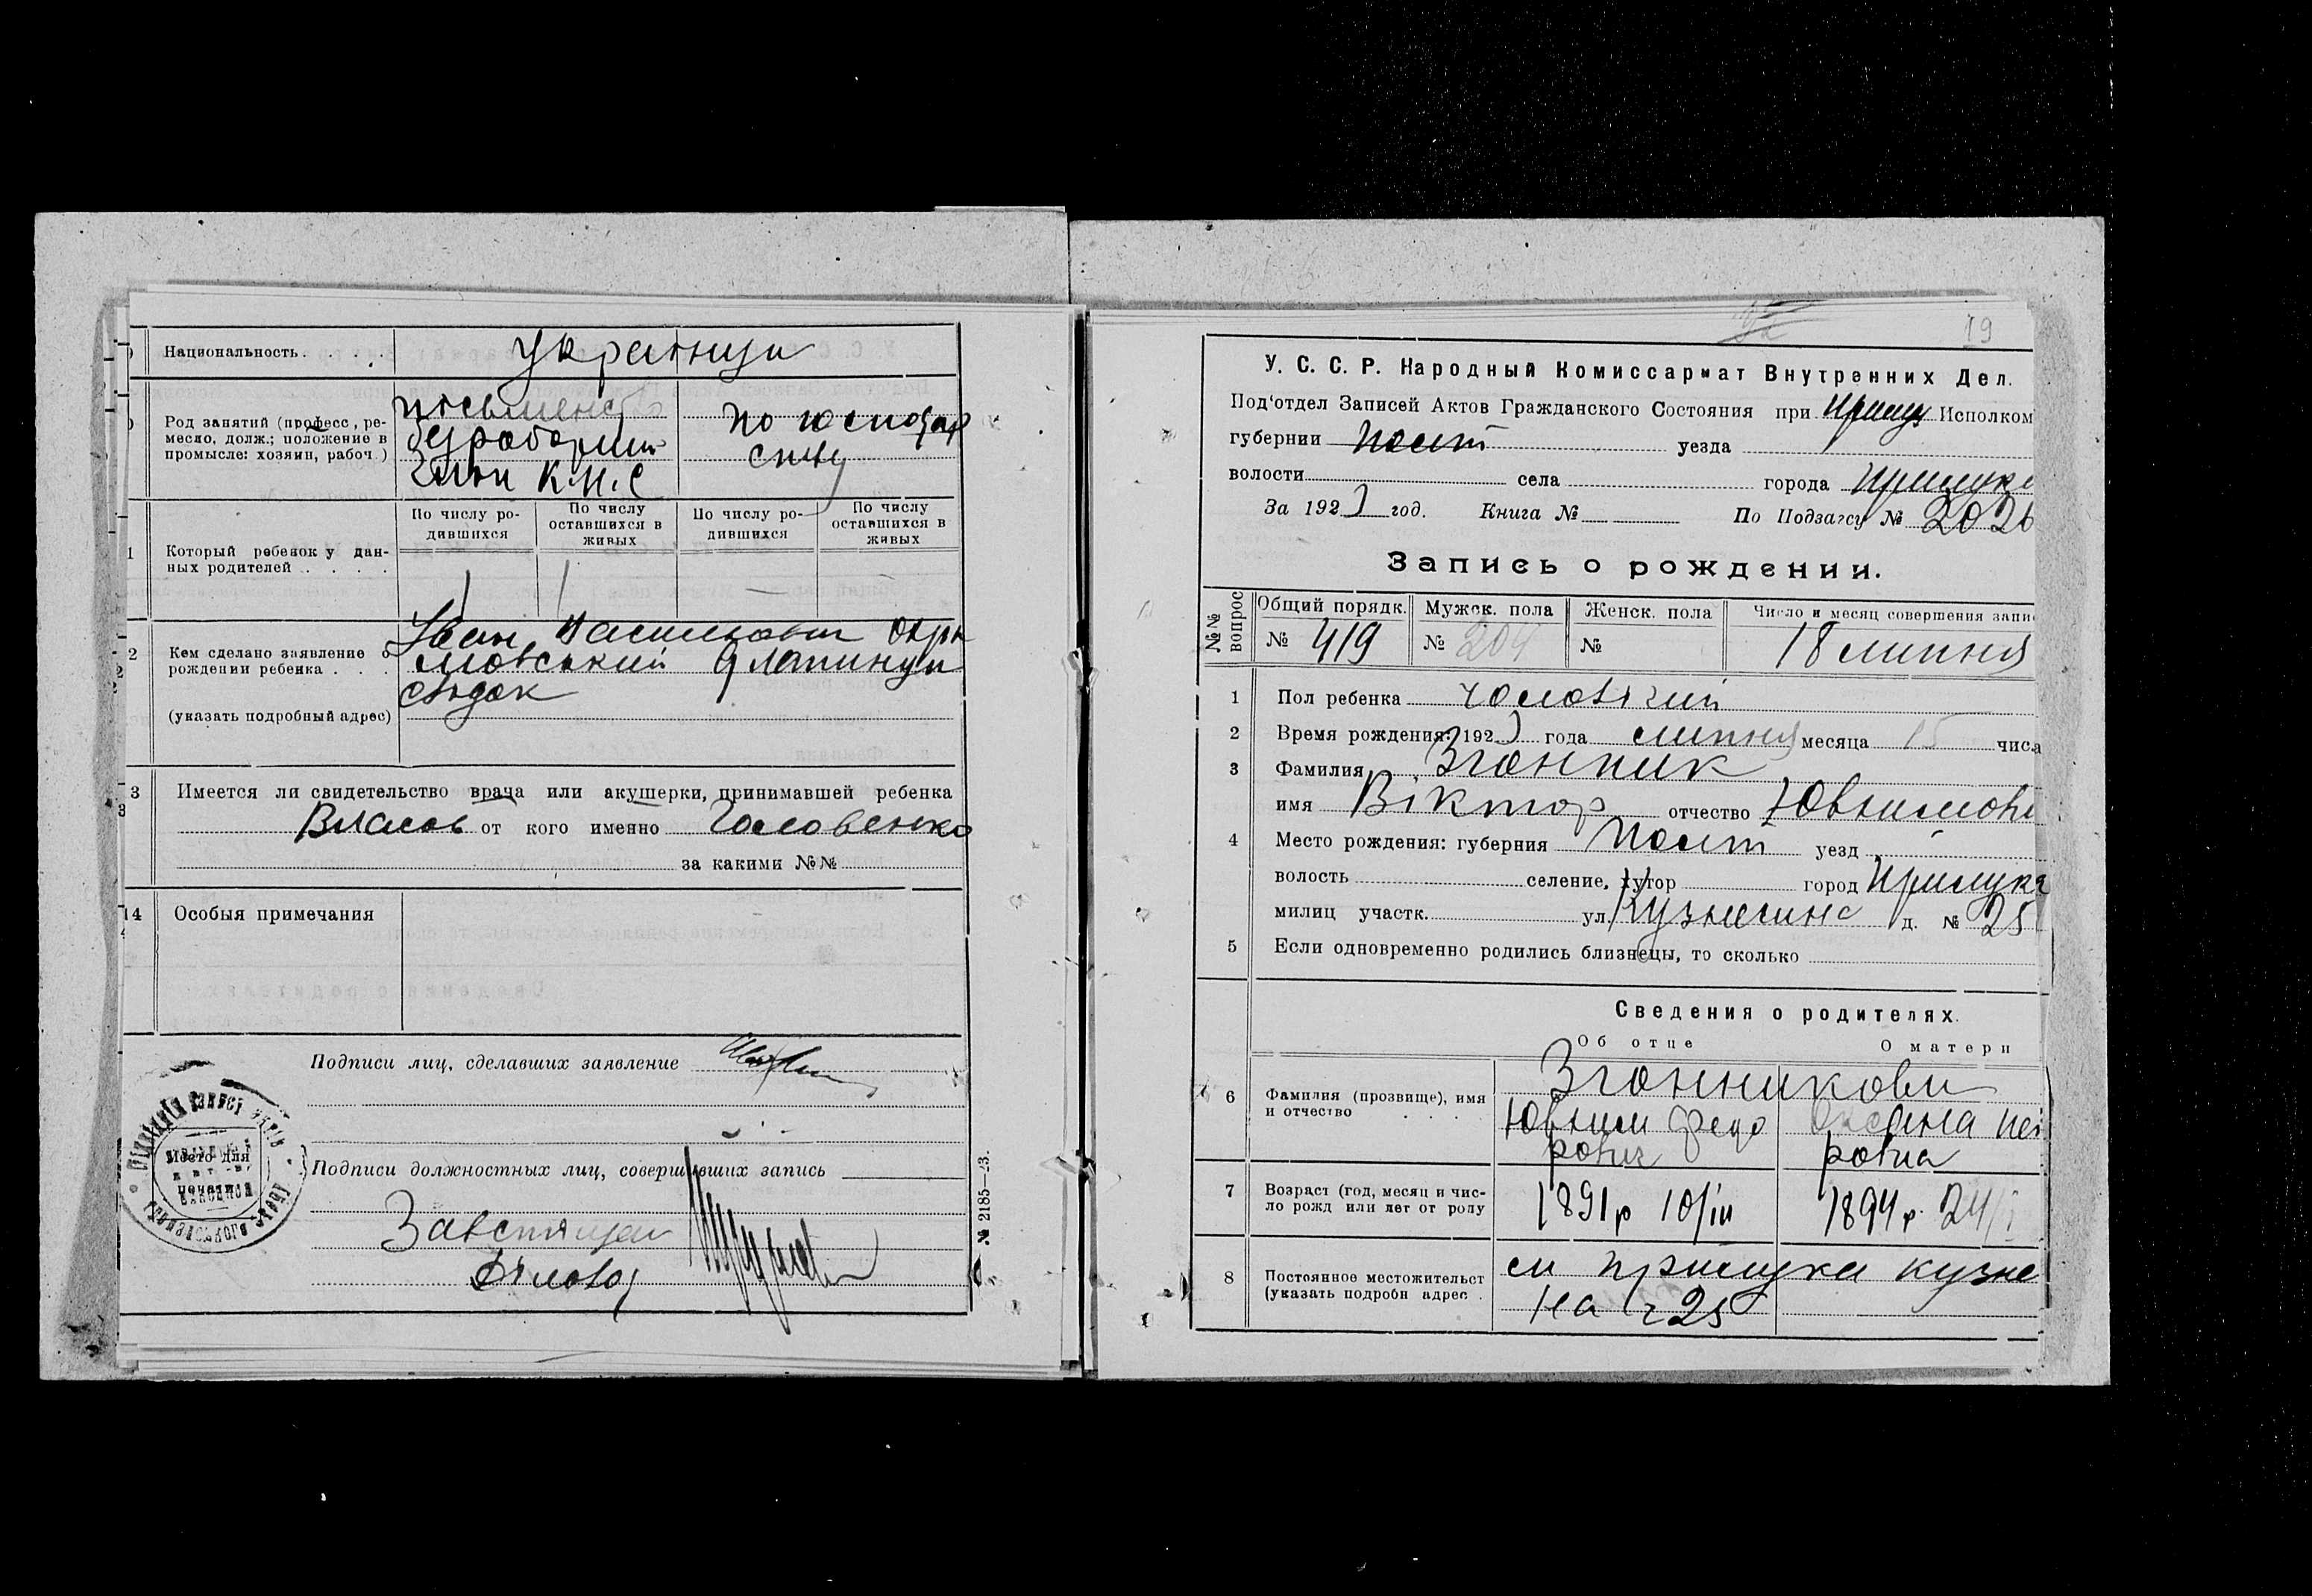 Национальность . . . . українци
Род занятий (професс, ре-
месло, долж.; положение в
промысле: хозяин, рабоч.)
письменс
безработний
член К.Н.С
по господар
ству
По числу ро-
дившихся
По числу
оставшихся в
живых
По числу ро-
дившихся
По числу
оставшихся в
живых
Который ребенок у дан-
ных родителей . . . .
1 1 —
Кем сделано заявление о
рождении ребенка . . .
(указать подробный адрес)
Іван Васильович
мовський
свідок
3 Имеется ли свидетельство врача или акушерки, принимавшей ребенка
от кого именно Головенко
за какими №№
14 Особыя примечания
Подписи лиц, сделавших заявление
Подписи должностных лиц, совершивших запись
Место для
печати
Завстолом
Діловод
№ 2185—23.
19
У. С. С. Р. Народный Комиссариат Внутренних Дел.
Под‘отдел Записей Актов Гражданского Состояния при Прилуц Исполком
губернии Полт уезда
волости села города Прилуки
За 192 3 год. Книга № По Подзагсу № 2026
Запись о рождении.
№№ вопрос
Общий порядк. Мужск. пола Женск. пола Число и месяц совершения запи
№ 419 № 204 № 18 липня
1 Пол ребенка чоловічий
2 Время рождения: 192 3 года липня месяца 15 числа
3 Фамилия Згонник
имя Віктор отчество Ювхимови
4 Место рождения: губерния Полт уезд
волость селение, хутор город Прилука
милиц участк. ул. д. № 25
5 Если одновременно родились близнецы, то сколько
Сведения о родителях.
Об отце О матери
6 Фамилия (прозвище), имя
и отчество . . . .
Згонникови
Ювхим Федо
рович
Оксана Пет
ровна
7 Возраст (год, месяц и чис-
ло рожд или лет от роду
1891р 10/ііі 1894 р. 24/і
8 Постоянное местожительст
(указать подробн адрес .
м Прилука кузне
на ч 25